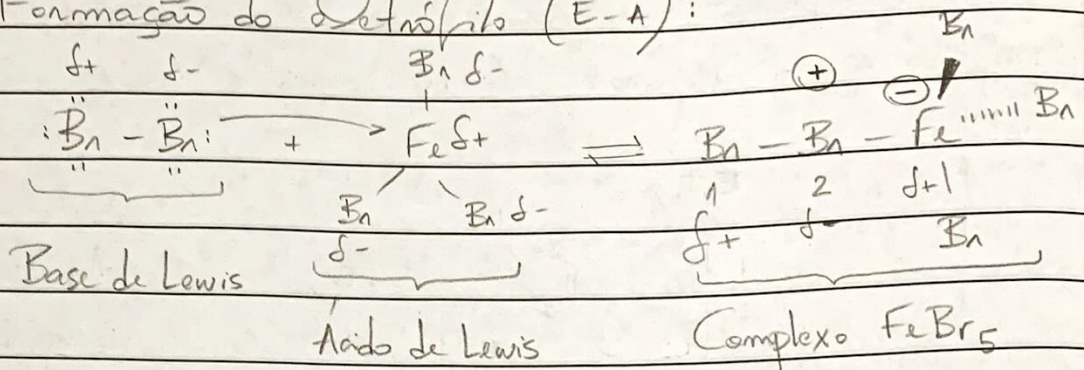 Formação do eletrófilo (E-A):
δ+ δ- Br δ- ⊕ ⊖ Br
:Br - Br: + Fe δ+ ⇌ Br - Br - Fe Br
Br Br δ- 1 2 δ+1
δ- δ+ δ- Br
Base de Lewis
Ácido de Lewis Complexo FeBr5